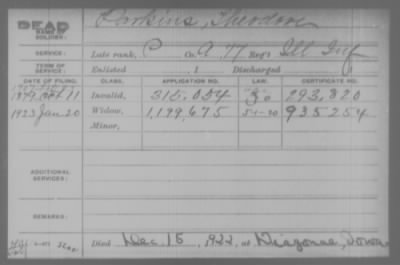 DEAD
NAME OF SOLDIER:
Theodore
SERVICE: Late rank, P Co. A, 77 Reg't Ill Inf
TERM OF SERVICE: Enlisted , 1 Discharged
DATE OF FILING. CLASS. APPLICATION NO. LAW. CERTIFICATE NO.
11 Invalid, 315,054 293,820
1923 Jan 20 Widow, 1,199,675 935254
Minor,
ADDITIONAL SERVICES:
REMARKS:
Died Dec. 15, 1922, at Diagonal, Iowa